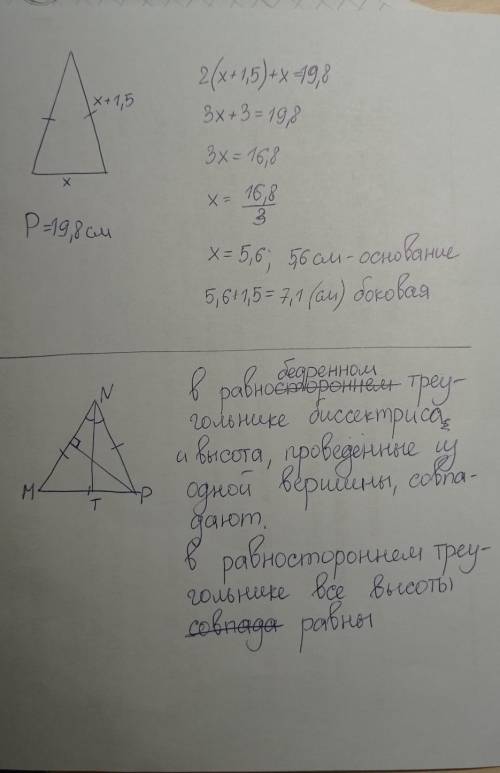 x+1,5
x
P=19,8 см
2(x+1,5)+x=19,8
3x+3=19,8
3x=16,8
x= 16,8/3
x=5,6; 5,6 см - основание
5,6+1,5=7,1 (см) боковая
N
M
T
P
бедренном
в равностороннем треу-
гольнике биссектриса
и высота, проведённые из
одной вершины, совпа-
дают.
в равностороннем треу-
гольнике все высоты
совпада равны